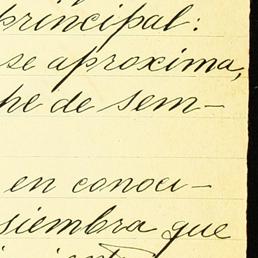 principal:
se aproxima,
he de sem-
en conoci-
siembra que